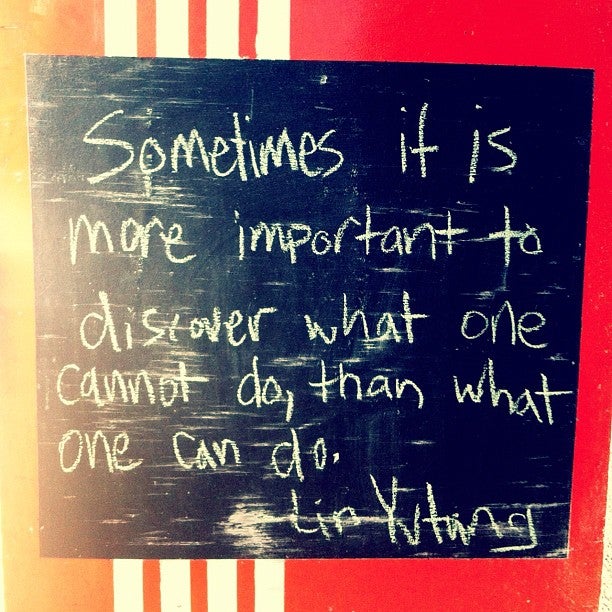 Sometimes it is
more important to
discover what one
cannot do, than what
one can do.
Lin Yutang